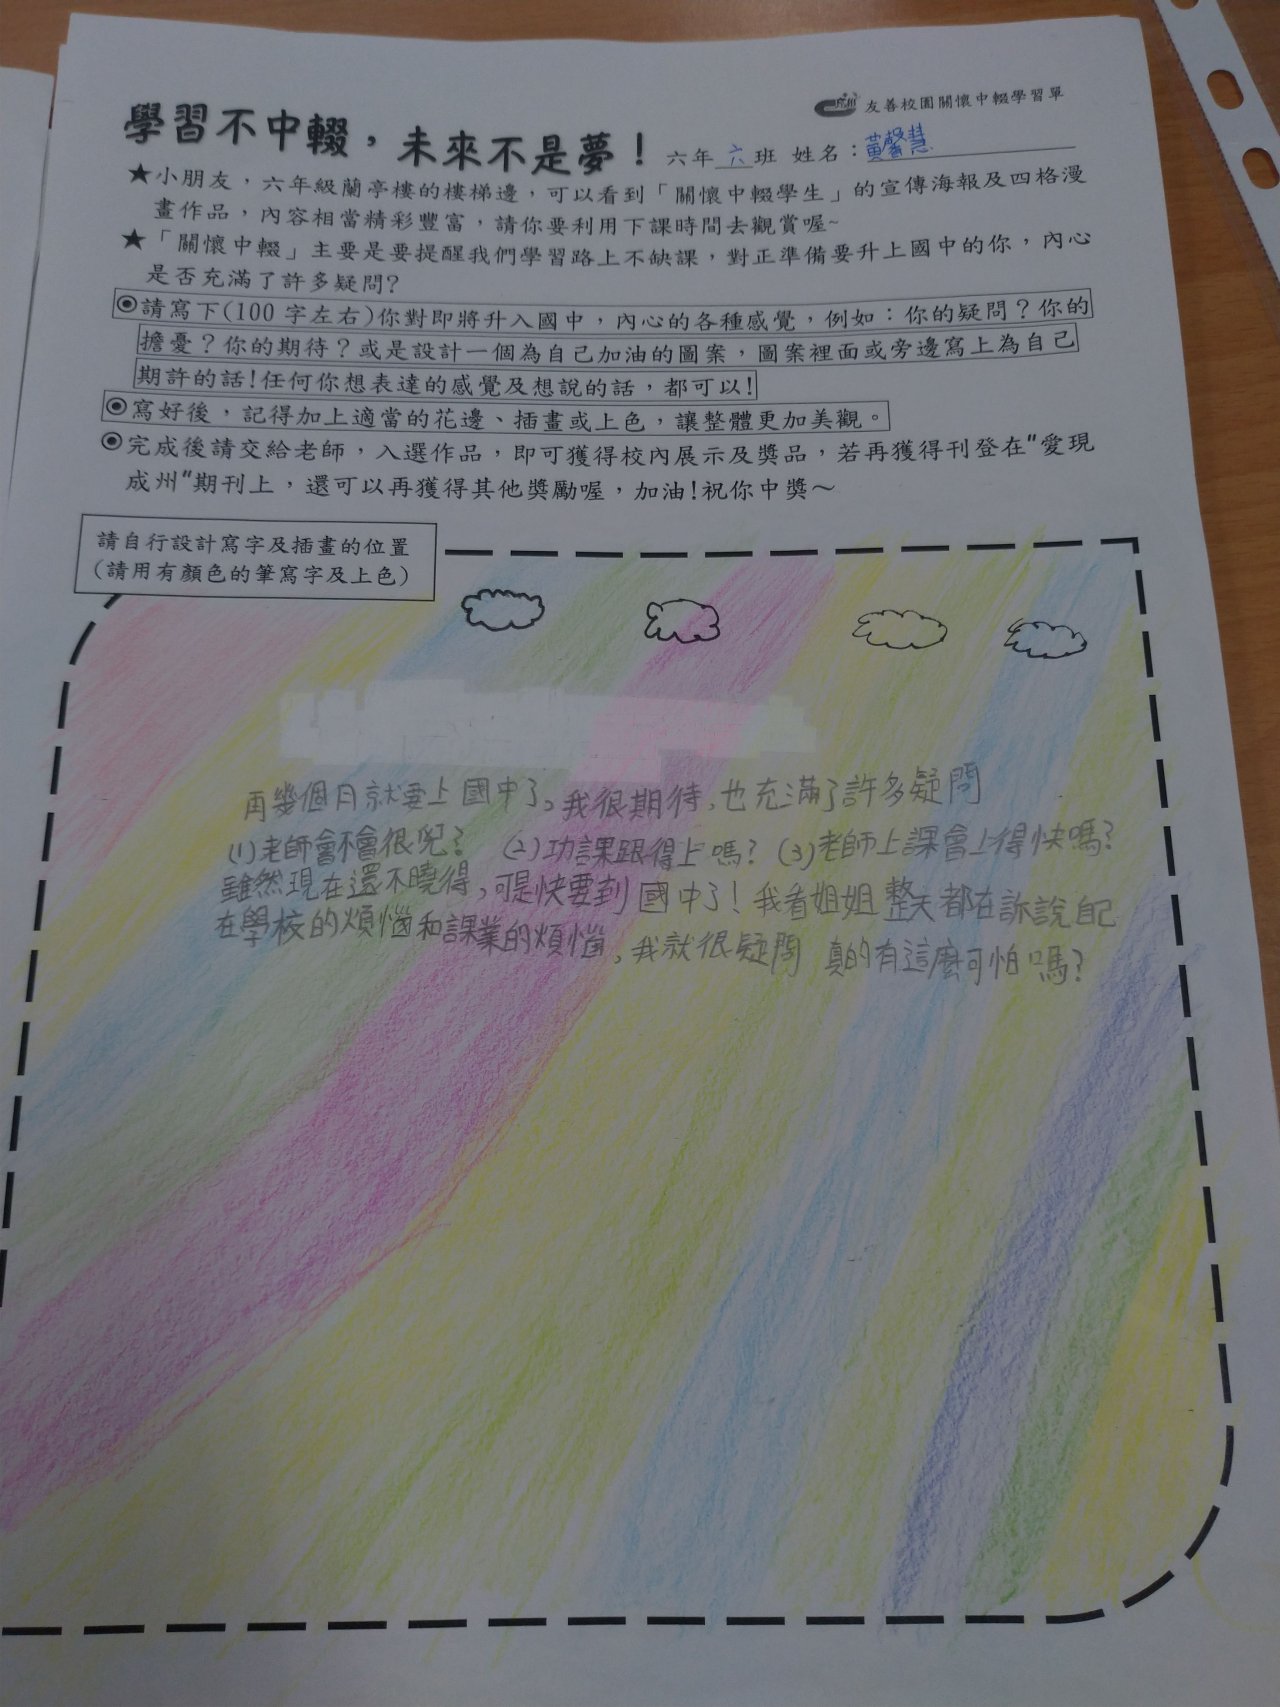 友善校園關懷中輟學習單
學習不中輟，未來不是夢！ 六年六班 姓名：黃馨慧
★小朋友，六年級蘭亭樓的樓梯邊，可以看到「關懷中輟學生」的宣傳海報及四格漫
畫作品，內容相當精彩豐富，請你要利用下課時間去觀賞喔~
★「關懷中輟」主要是要提醒我們學習路上不缺課，對正準備要升上國中的你，內心
是否充滿了許多疑問?
◉請寫下(100字左右)你對即將升入國中，內心的各種感覺，例如：你的疑問？你的
擔憂？你的期待？或是設計一個為自己加油的圖案，圖案裡面或旁邊寫上為自己
期許的話!任何你想表達的感覺及想說的話，都可以!
◉寫好後，記得加上適當的花邊、插畫或上色，讓整體更加美觀。
◉完成後請交給老師，入選作品，即可獲得校內展示及獎品，若再獲得刊登在"愛現
成州"期刊上，還可以再獲得其他獎勵喔，加油!祝你中獎～
請自行設計寫字及插畫的位置
(請用有顏色的筆寫字及上色)
再幾個月就要上國中了。我很期待，也充滿了許多疑問
(1)老師會不會很兇? (2)功課跟得上嗎? (3)老師上課會上得快嗎?
雖然現在還不曉得，可是快要到國中了！我看姐姐整天都在訴說自己
在學校的煩惱和課業的煩惱，我就很疑問 真的有這麼可怕嗎?